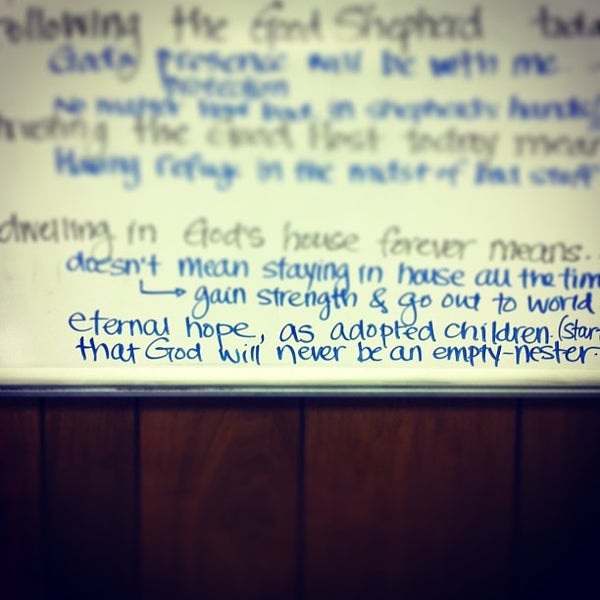 Following the Good Shepherd toda
God's presence will be with me
protection
No matter how bad, in shepherd's hands
the Good Host today mean
Having refuge in the midst of bad stuff
dwelling in God's house forever means..
doesn't mean staying in house all the tim
→ gain strength & go out to world
eternal hope, as adopted children. (star
that God will never be an empty-nester.